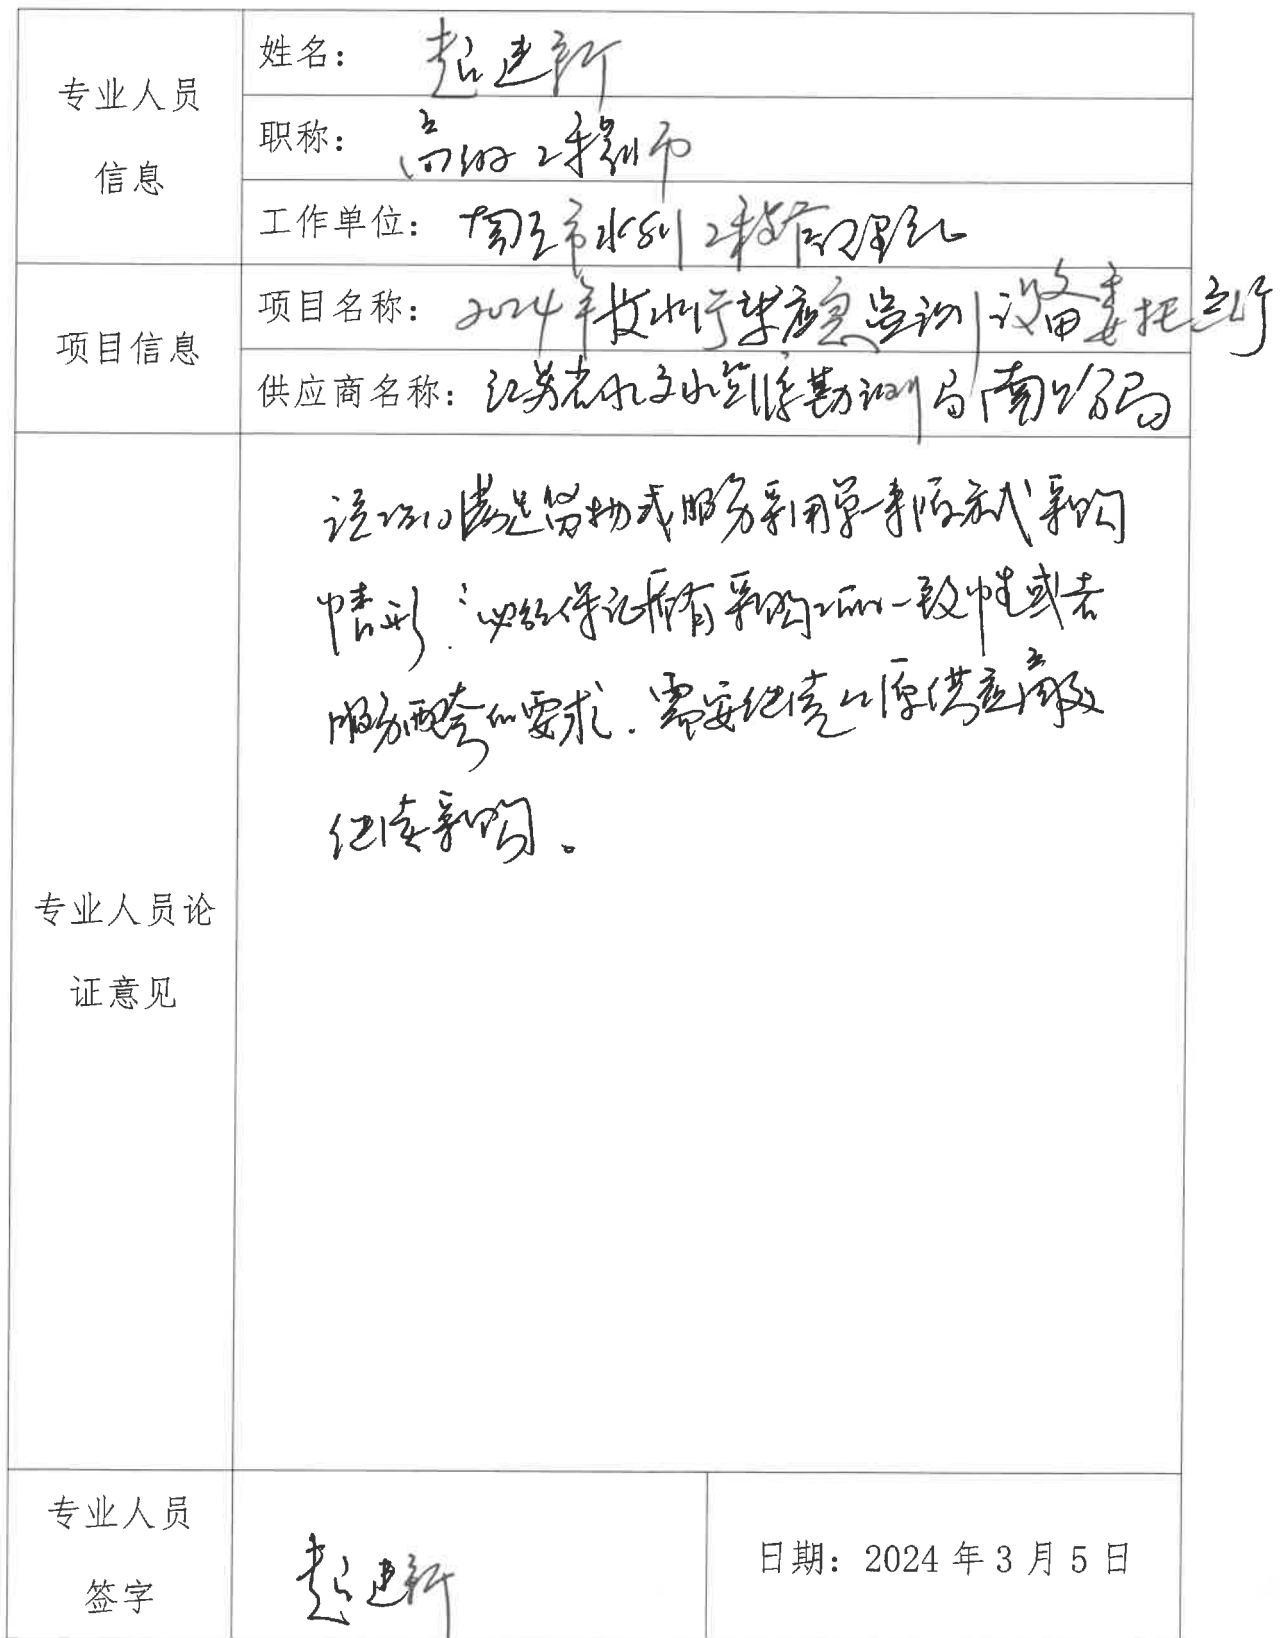 专业人员
信息
姓名：赵建新
职称：高级工程师
工作单位：南京市水利工程管理
项目信息
项目名称：2024年 水 应急监测设备委托
供应商名称：江苏省水文水资源勘测局南京分局
专业人员论
证意见
该项目满足货物或服务采用单一来源方式采购
情形：必须保证原有采购 一致性或者
服务配套的要求，需要继续从原供应商处
继续采购。
专业人员
签字
赵建新
日期：2024 年 3 月 5 日